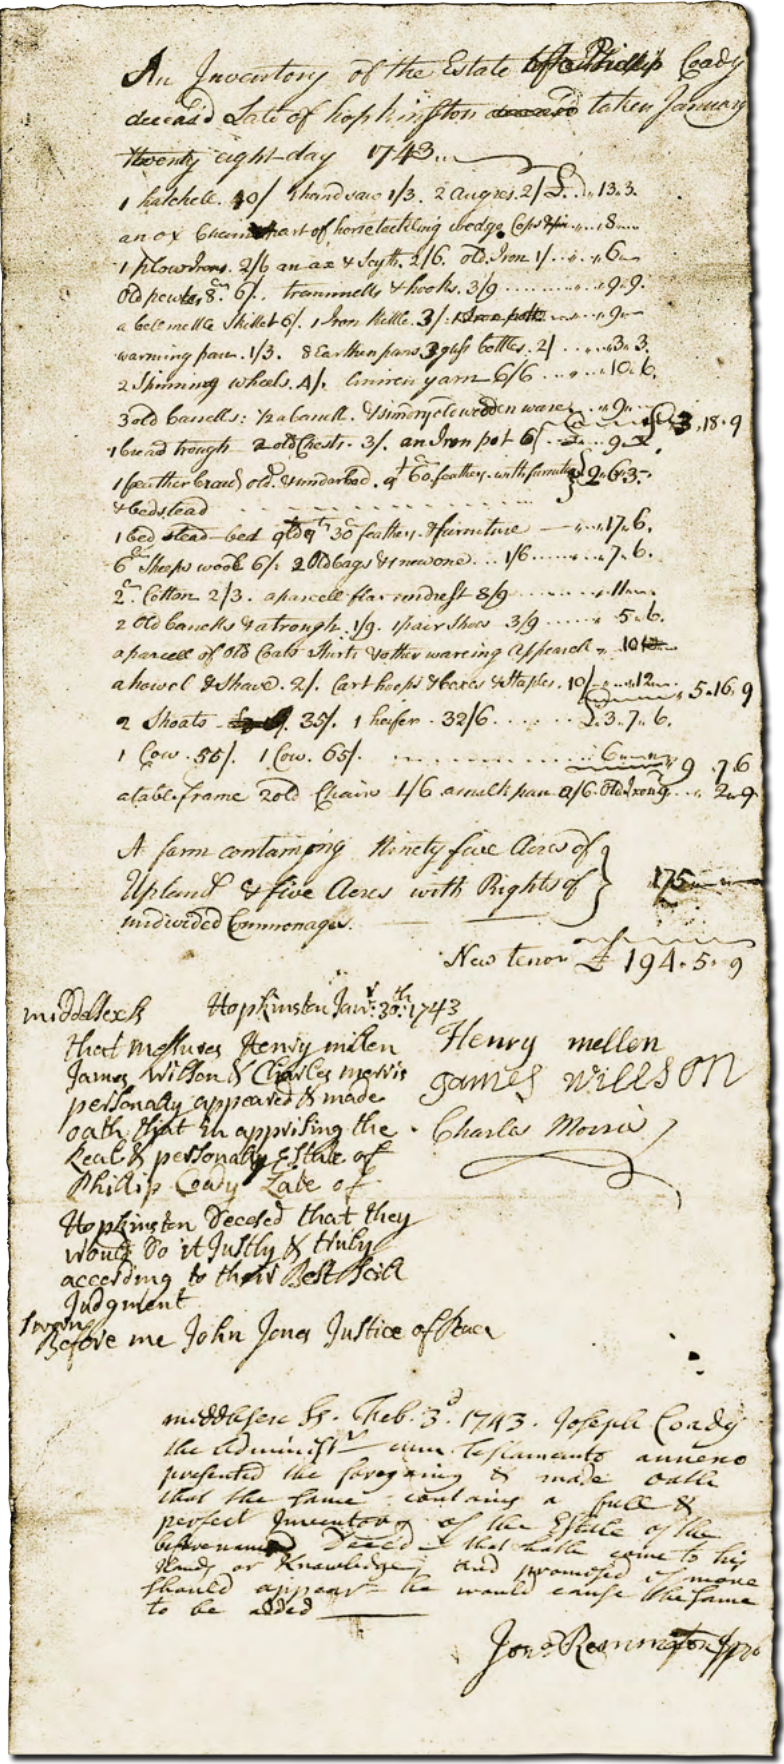 An Inventory of the Estate of Phillip Coady
deceasd Late of hopkinston deceasd taken January
twenty eight day 1743
1 hatchell. 10/ 1 hand saw 1/3. 2 Augres. 2/ £..,, 13.. 3.
an ox part of horse teckling wedge Cops & pin ..,, 8
1 plow Irons. 2/6 an ax & Scyth. 2/6. old Iron 1/ ..,, 6
old pewter, 8. 6/. trammells & hooks. 3/9 ......,, 9.. 9.
a bell mettle Skillet 6/. 1 Iron Kettle. 3/. 1 Iron pott ..,, 9
warming pan. 1/3. 8 Earthen pans 3 glass bottles. 2/ ....,, 3.. 3.
2 Spinning wheels. 4/. Linnen yarn 6/6 ....,, 10.. 6.
3 old barrells: 1/2 a barell. & sundry old wooden ware ..,, 9
£3,, 18.. 9
1 bread trough 2 old Chests. 3/. an Iron pot 6/ .. 9
1 feather bead old. & underbed. 60 feathers. with furniture } 2.. 6.. 3
& bedstead
1 bed stead bed old 30 feathers. & furniture ..,, 17.. 6.
6 Sheeps wool 6/. 2 Old bags & 1 new one. 1/6 ....,, 7.. 6.
2 Cotton 2/3. a parcell flax undrest 8/9 ....,, 11
2 Old barrells & a trough. 1/9. 1 pair Shoes 3/9 ....,, 5.. 6.
a parcell of Old Coats Shirts & other wareing Apparell ,, 10
a howel & Shave. 2/. Cart hoops & boxes & Staples. 10/ ..,, 12
5.. 16.. 9
2 Shoats 35/. 1 heifer. 32/6 ...... £. 3.. 7.. 6.
1 Cow. 55/. 1 Cow. 65/. ........ 6
9 .. 7.. 6
a table frame 2 old Chairs 1/6 a milk pan Old Iron 9 .. 2.. 9
A farm containing Ninety five Acres of
Upland & five Acres with Rights of } 175
undivided Commonages.
New tenor £ 194.. 5.. 9
middlesex Hopkinston Janr: 30th: 1743
that Messures Henry millen
James Wilson & Charles morris
personaly appeared & made
oath that in apprising the
Real & personaly Estate of
Phillip Coady Late of
Hopkinston Decesed that they
would Do it Justly & truly
according to their Best Skill
Judgment
Henry mellen
James Willson
Charles Morris
Sworn
Before me John Jones Justice of Peace
middlesex Ss. Feb. 3d. 1743. Joseph Coady
the Administr cum Testamento annexo
presented the foregoing & made oath
that the same contains a full &
perfect Inventory of the Estate of the
beforenamed Deced that hath come to his
Hands or Knowledge, and promised if more
should appear he would cause the same
to be added
Jona Remington J pro